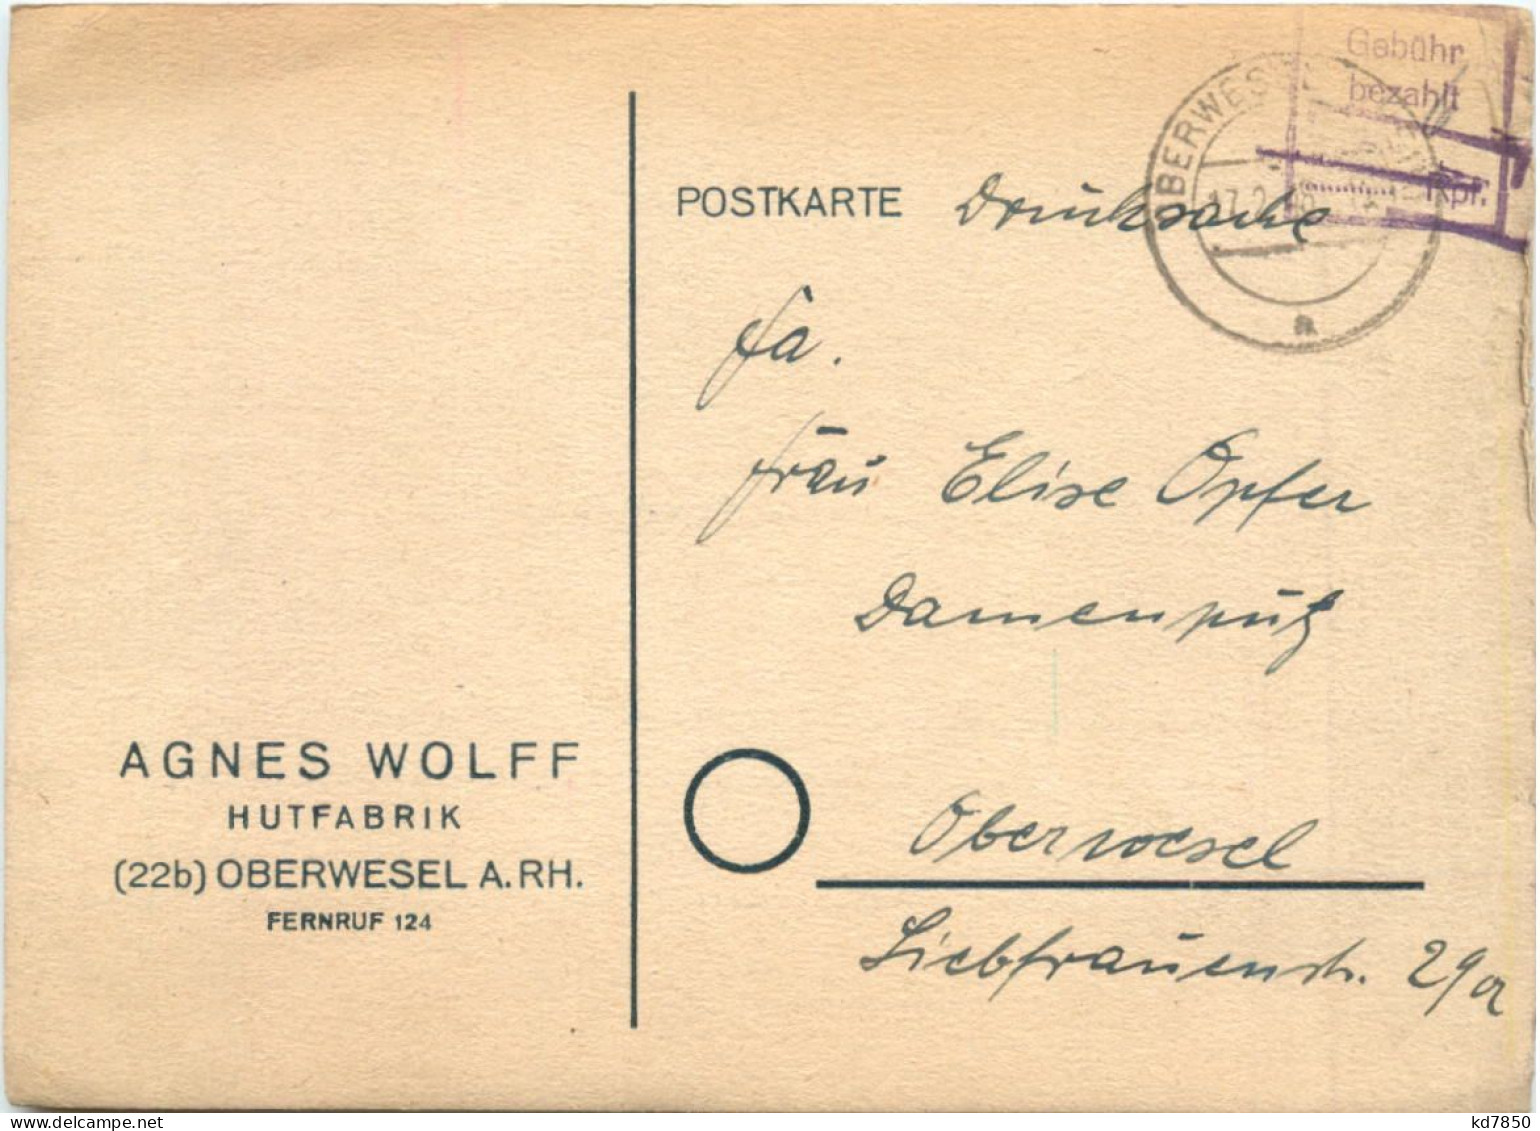 Gebühr
bezahlt
Rpf.
OBERWESEL
17.2.
a
POSTKARTE Drucksache
Fa.
Frau Elise Opfer
Damenputz
Oberwesel
Liebfrauenstr. 29a
AGNES WOLFF
HUTFABRIK
(22b) OBERWESEL A.RH.
FERNRUF 124
www.delcampe.net
kd7850